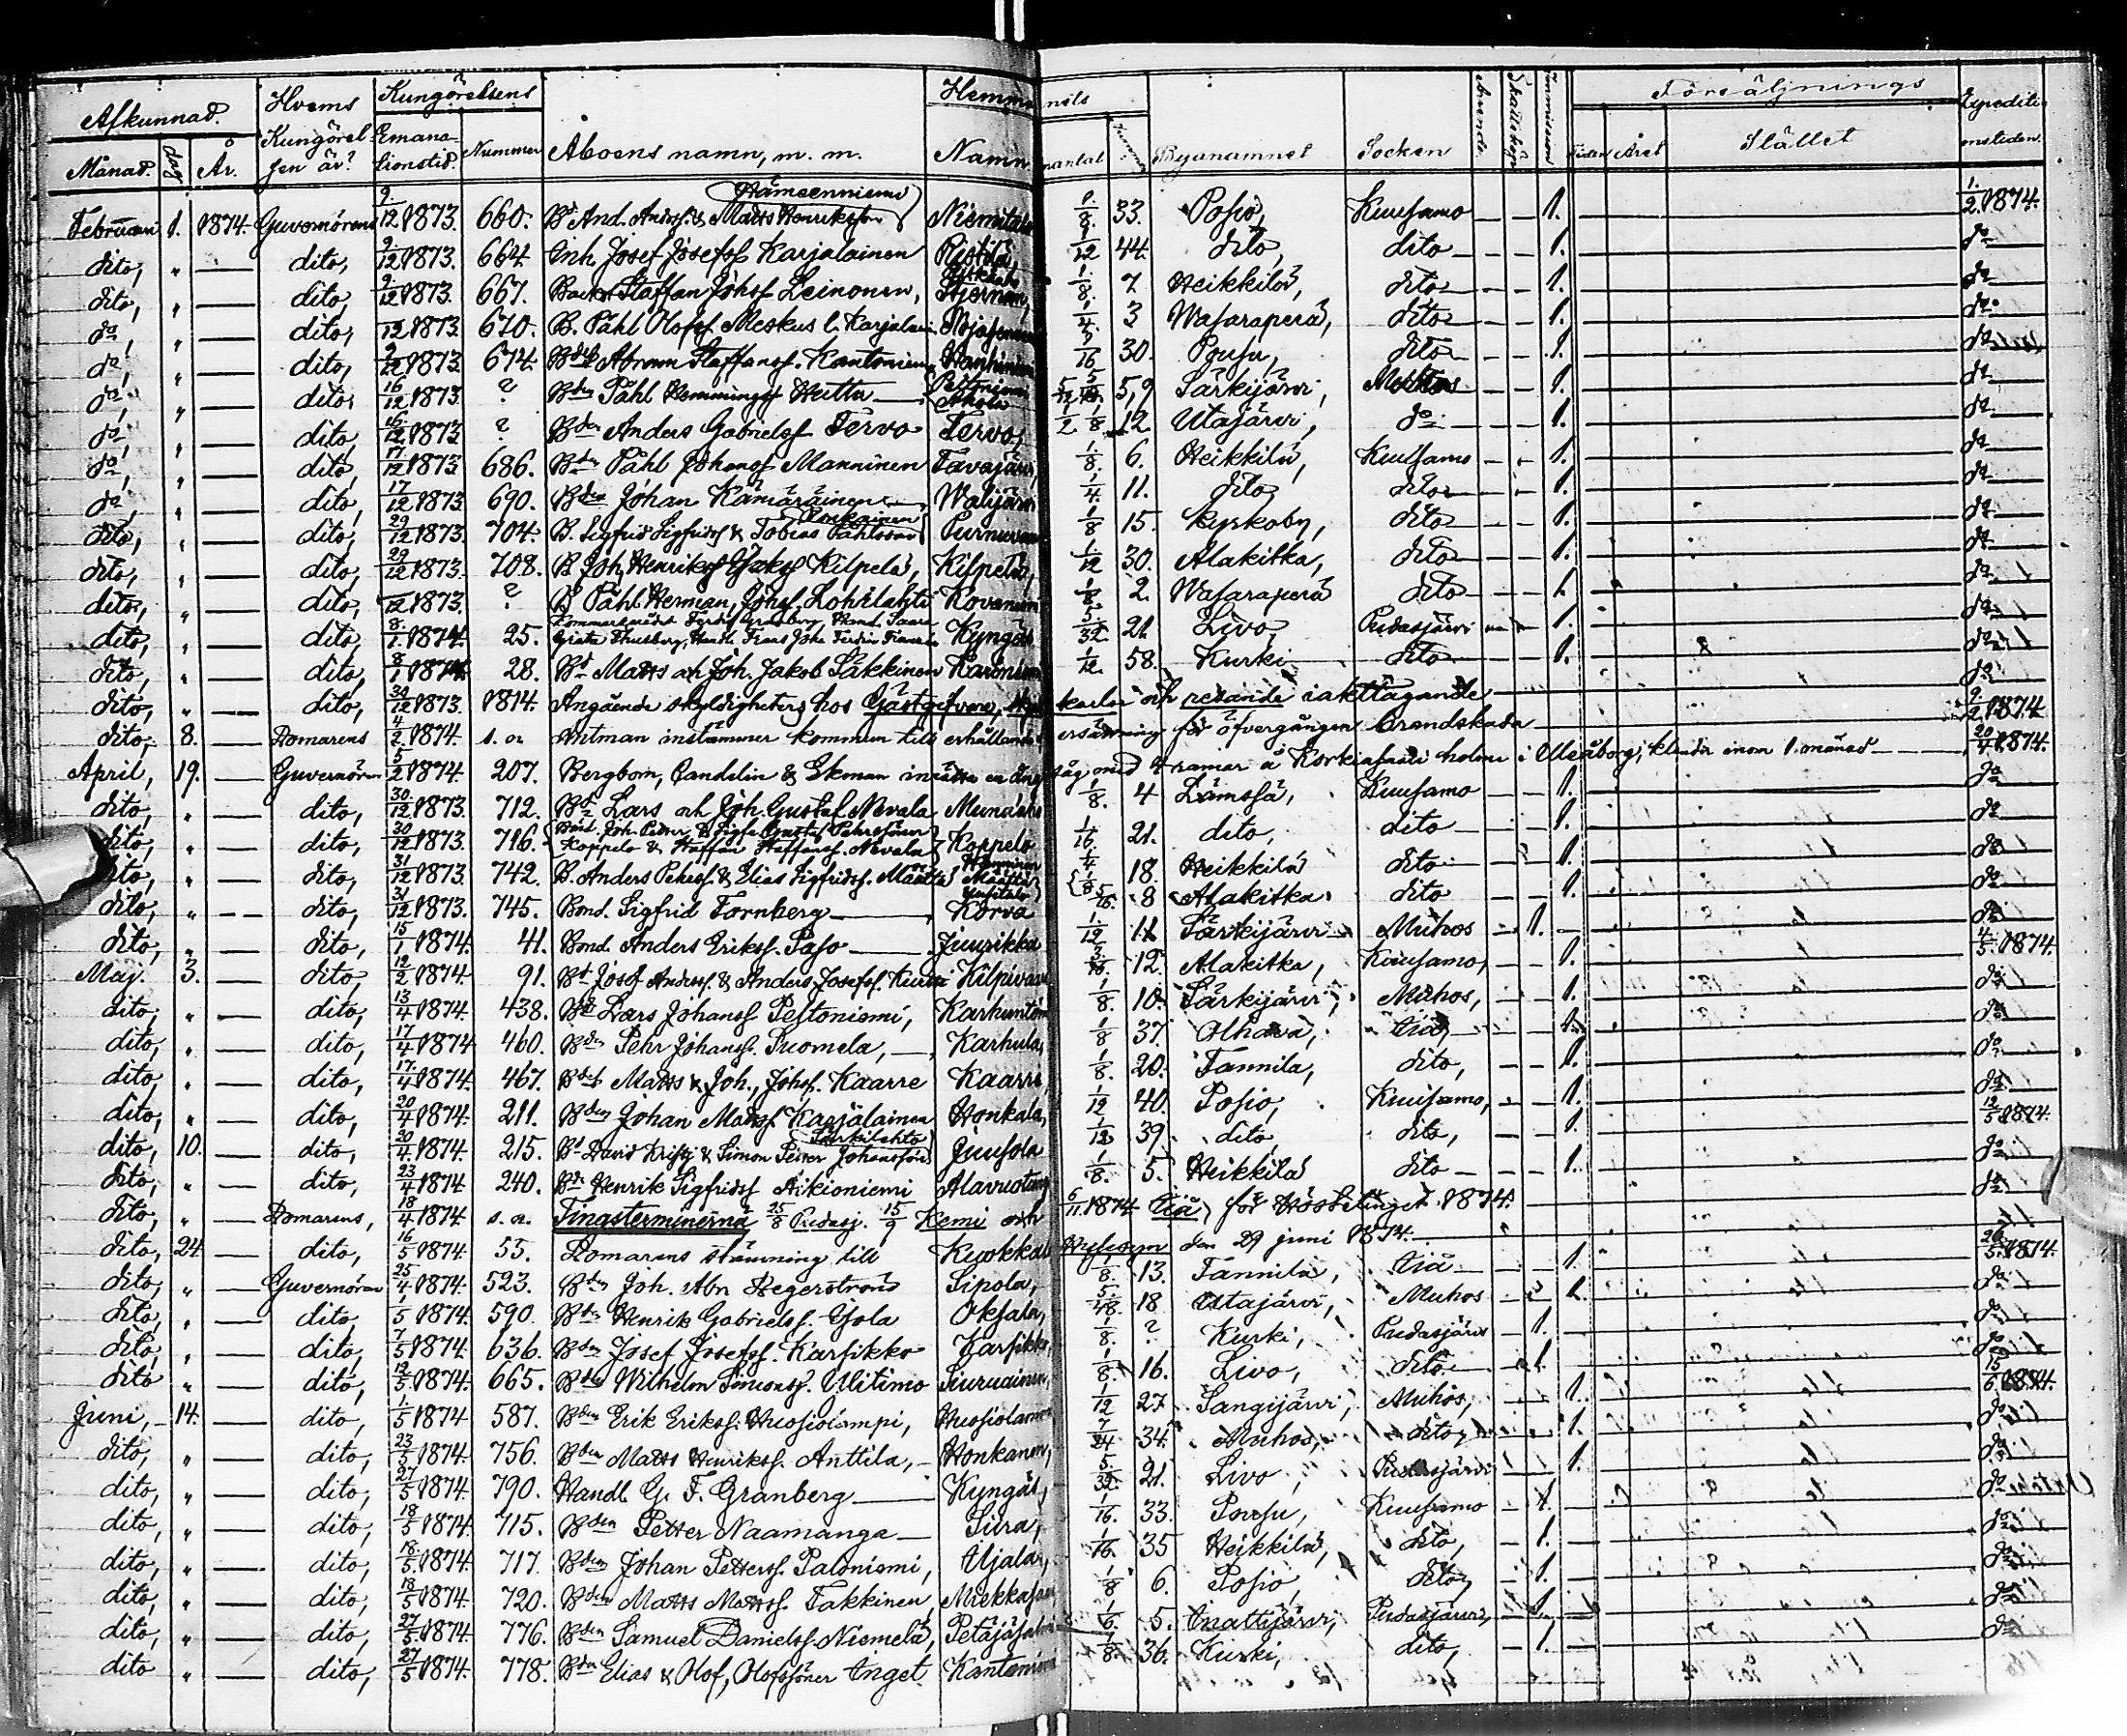 Afkunnad. Hvems Kungörelsens Hemmanets Försäljnings Expediti-
Månad. dag År. Kungörel- sen är? Emana- tionstid. Nummer Aboens namn, m. m. Namn mantal Byanamnet Socken Tiden Året Stället onstiden.
Februari 1. 1874. Guvernörens 9/12 1873. 660. Bd And. Andss. & Matts Henriksson Hämeenniemi Niemitalo 1/8. 33. Posio, Kuusamo — — 1. 1/2. 1874.
dito, " — dito, 9/12 1873. 664. Inh Josef Josefss Karjalainen Ristilä, 1/12 44. dito, dito — — 1. do
dito, " — dito, 9/12 1873. 667. Staffan Johss Leinonen, 1/8. 7 Heikkilä, dito — — 1. do
do, " — dito, 12 1873. 670. B. Påhl Olofss Meskus l. Karjalain. 1/4. 3 Wasaraperä, dito — — 1. do
do, " — dito, 12 1873. 674. Abram Staffanss. Kantoniem 16 30. Pousu, dito — — 1. do
do, " — dito, 16/12 1873. ? Bden Påhl Hemmingss Heitta — Ahola 5,9 Särkijärvi, Muhos — — 1. do
do, " — dito, 16/12 1873 ? Bden Anders Gabrielss Tervo Tervo, 12 Utajärvi, do — — 1. do
do, " — dito, 17/12 1873 686. Bden Påhl Johanss Manninen Tavajärvi, 1/8. 6. Heikkilä, Kuusamo — — 1. do
do, " — dito, 17/12 1873. 690. Bden Johan Kämäräinen — 1/4. 11. dito, dito — — 1. do
dito, " — dito, 29/12 1873. 704. B. Sigfrid Sigfridss & Tobias Påhlsson Purnuvaara 1/8 15. Kyrkoby, dito — — 1. do
dito, " — dito, 29/12 1873. 708. B Joh. Henrikss Kilpelä, Kilpelä, 1/12 30. Alakitka, dito — — 1. do
dito, " — dito, 12 1873. ? B Påhl Herman, Johss. Lohilahti Kovaniemi 1/8 2. Wasaraperä dito — — 1. do
dito, " — dito, 8/1. 1874. 25. Kommerserådet Ferdin. Granberg, Kyngäs 5/32. 21. Livo, Pudasjärvi — — 1. do
dito, " — dito, 8/1 1874. 28. Bd Matts och Joh. Jakob Säkkinen 1/12. 58. Kurki dito — — 1. do
dito, " — dito, 30/12 1873. 1814. Angående skyldigheters hos Gästgifvare, skjutskarlar och resande iakttagande — do
dito, 8. — Domarens 4/2. 1874. s. n. Antman instämmer kommun till erhållande ersättning för öfvergången brandskada — 9/2. 1874
April, 19. — Guvernören 5/2 1874. 207. Bergbom, Candelin & Ekman inrätta en ångsåg med 4 ramar å Korkiasaari holme i Uleåborg; klandr inom 1. månad — 20/4. 1874.
dito, " — dito, 30/12 1873. 712. Bd Lars och Joh. Gustaf Nevala 1/8. 4 Lämsä, Kuusamo — — 1. do
dito, " — dito, 30/12 1873. 716. Koppelo & Staffan Staffanss. Nevala Koppelo 1/16. 21. dito, dito — — 1. do
dito, " — dito, 31/12 1873. 742. B. Anders Pehrss. & Elias Sigfridss. Määttä Määttä 1/4 18. Heikkilä dito — — 1. do
dito, " — dito, 31/12 1873. 745. Bond. Sigfrid Tornberg — Korva 8 Alakitka dito — — 1. do
dito, " — dito, 15/1 1874. 41. Bond. Anders Erikss. Paso — Juurikka 1/12 11 Särkijärvi Muhos — 1. — do
Maj. 3. — dito, 12/2 1874. 91. Bd Josef Andrss. & Anders Josefss. Kurtti Kilpivaara 12. Alakitka, Kuusamo, — — 1. 4/5 1874.
dito, " — dito, 13/4 1874. 438. Bd Lars Johanss Pestoniemi, 1/8. 10. Särkijärvi, Muhos, — — 1. do
dito, " — dito, 17/4 1874 460. Bden Pehr Johanss. Tuomela, — Karhula, 1/8 37. Olhava, Ijå, — — 1. do
dito, " — dito, 17/4 1874. 467. Matts & Joh., Johss. Kaarre Kaarre 1/8. 20. Tannila, dito, — — 1. do
dito, " — dito, 20/4 1874. 211. Bden Johan Matss. Karjalainen Honkala, 1/12 40. Posio, Kuusamo, — — 1. do
dito, 10. — dito, 20/4. 1874. 215. Bd David & Simon Petter Johanssöner Särkilahto Juusola 1/12 39. dito, dito, — — 1. 12/5 1874.
dito, " — dito, 23/4 1874 240. Bdn Henrik Sigfridss Aikioniemi Alavuotunki 1/8. 5. Heikkilä dito — — 1. do
dito, " — Domarens, 18/4 1874 s. n. Tingsterminerna 25/8 Pudasj. 15/9 Kemi och 6/11. 1874 Ijå, för Hösttinget 1874. do
dito, 24 — dito, 16/5 1874. 55. Domarens stämning till Kuokkala Husesyn den 29 juni 1874. —
dito, " — Guvernören 25/4. 1874. 523. Bden Joh. Abr Hegerströms Sipola, 1/8. 13. Tannila, Ijå — — 1. 26/5. 1874.
dito, " — dito, 5 1874. 590. Bden Henrik Gabrielss. Ojala Oksala, 5/48. 18 Utajärvi, Muhos — — 1. do
dito, " — dito, 7/5 1874. 636. Bden Josef Josefss. Karsikko Karsikko, 1/8. ? Kurki, Pudasjärvi — 1. — do
dito " — dito, 12/5. 1874. 665. Bden Wilhelm Simonss. Ulitimo Siuruainen, 1/8. 16. Livo, dito — 1. do
Juni, 14. — dito, 1/5 1874 587. Bden Erik Erikss. Huosiolampi, Huosiolampi 1/12 27 Sangijärvi, Muhos, 1. 15/6. 1874.
dito, " — dito, 23/5 1874. 756. Bden Matts Henrikss. Anttila, — Honkanen, 7/24 34. Muhos, dito, 1. do
dito, " — dito, 27/5 1874. 790. Handl. G. F. Granberg — Kyngäs, 5/32. 21. Livo, Pudasjärvi 1. do
dito, " — dito, 18/5 1874. 715. Bden Petter Naamanga — 1/16. 33. Pousu, Kuusamo — 1. — do
dito, " — dito, 18/5. 1874. 717. Bden Johan Petterss. Paloniemi, Ojala, 1/16. 35 Heikkilä, dito, — 1. — do
dito, " — dito, 18/5 1874. 720. Bden Matts Mattss. Takkinen, 1/8 6. Posio, dito, — 1. — do
dito, " — dito, 27/5. 1874. 776. Bden Samuel Danielss. Niemelä, Petäjäjalmi 1/6. 5. Inattijärvi, Pudasjärvi, — 1. — do
dito " — dito, 27/5 1874. 778. Bdn Elias & Olof, Olofssöner Inget. 1/8. 36. Kurki, dito, — 1. — do